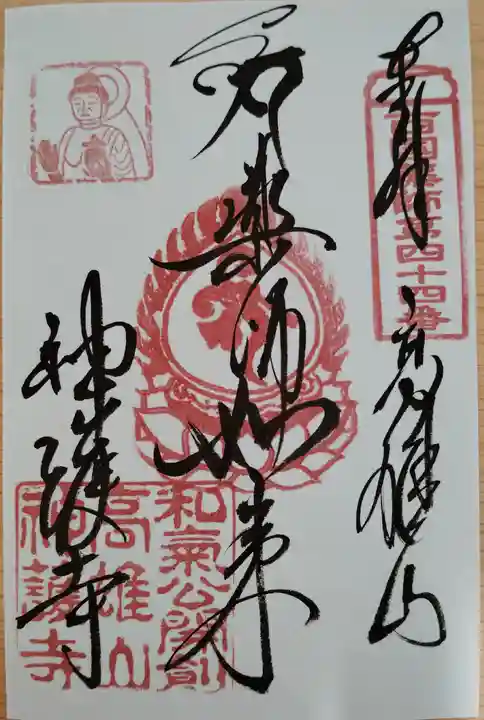 奉拝 高雄山
西国薬師第四十四番
薬師如来
神護寺
和氣公開創
高雄山
神護寺